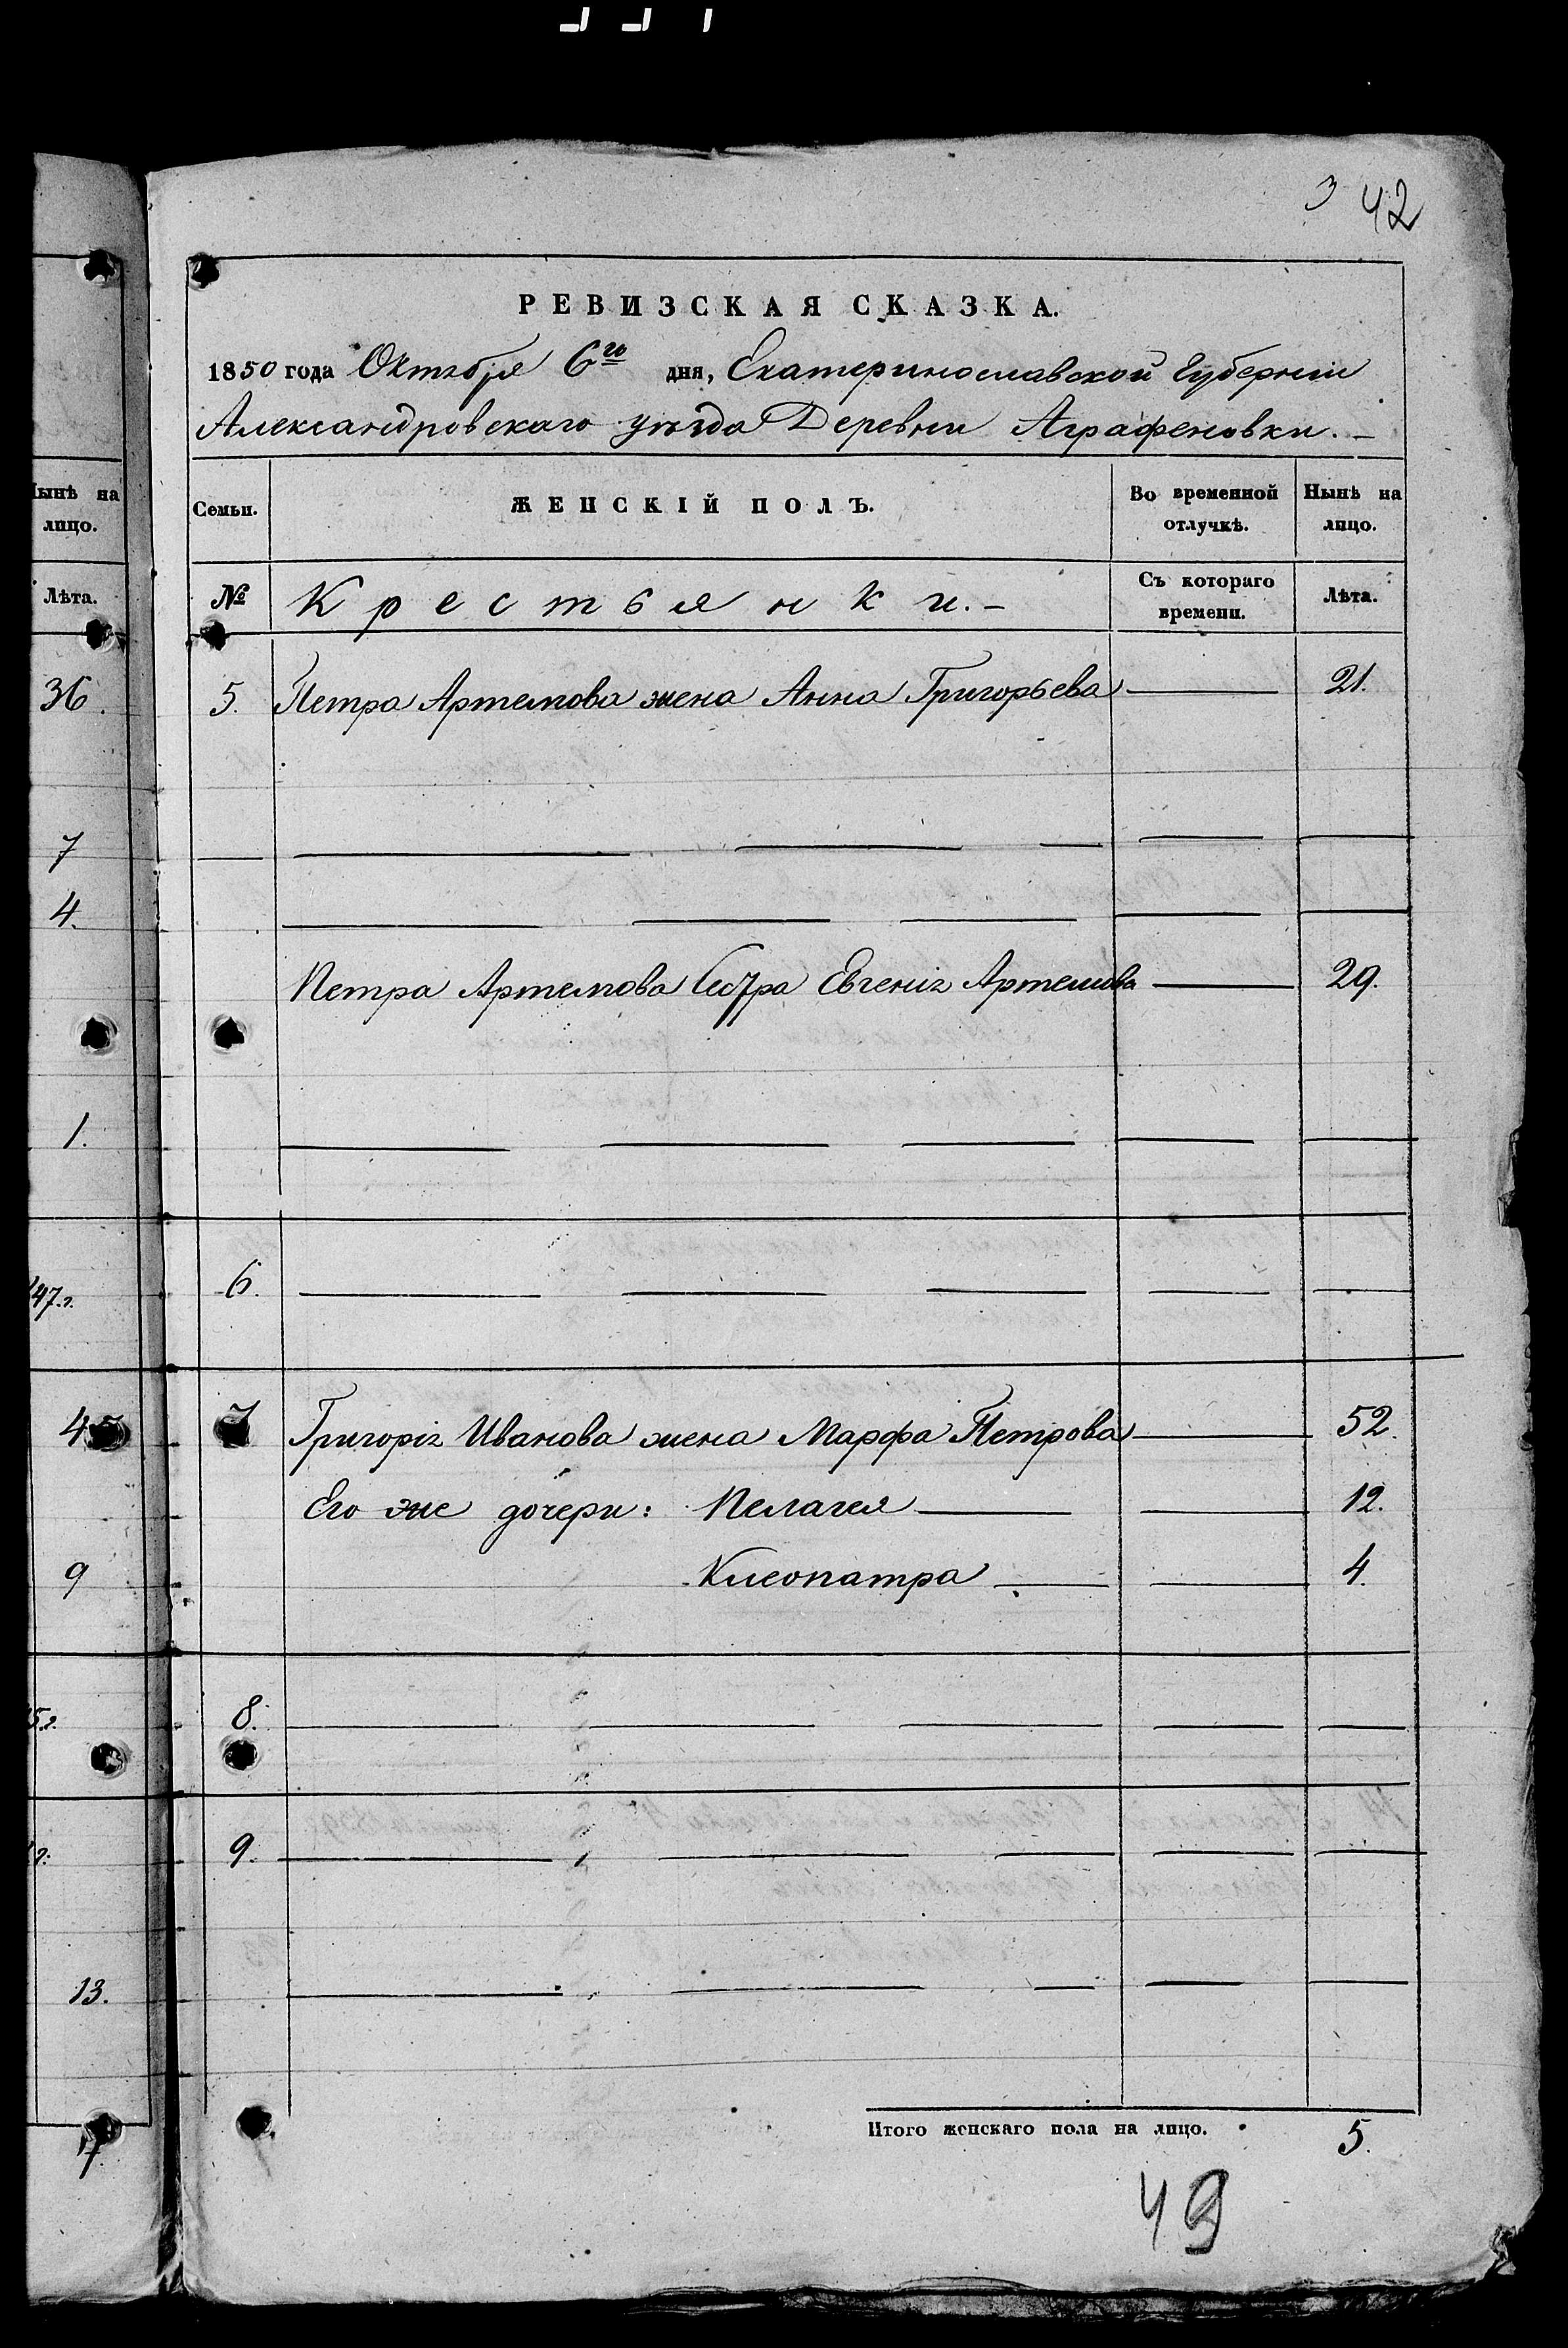 3 42
РЕВИЗСКАЯ СКАЗКА.
1850 года Октября 6го дня, Екатеринославской Губернии
Александровскаго уѣзда Деревни Аграфеновки. –
Нынѣ на лицо.
Семьи.
ЖЕНСКІЙ ПОЛЪ.
Во временной отлучкѣ.
Нынѣ на лицо.
Лѣта.
№
Крестьянки. –
Съ котораго времени.
Лѣта.
36.
5. Петра Артемова жена Анна Григорьева 21.
7
4.
Петра Артемова Сестра Евгенія Артемова 29.
1.
47.г.
6.
7 Григорія Иванова жена Марфа Петрова 52.
Его же дочери: Пелагея 12.
9
Клеопатра 4.
8.
9.
13.
Итого женскаго пола на лицо. 5.
7
49